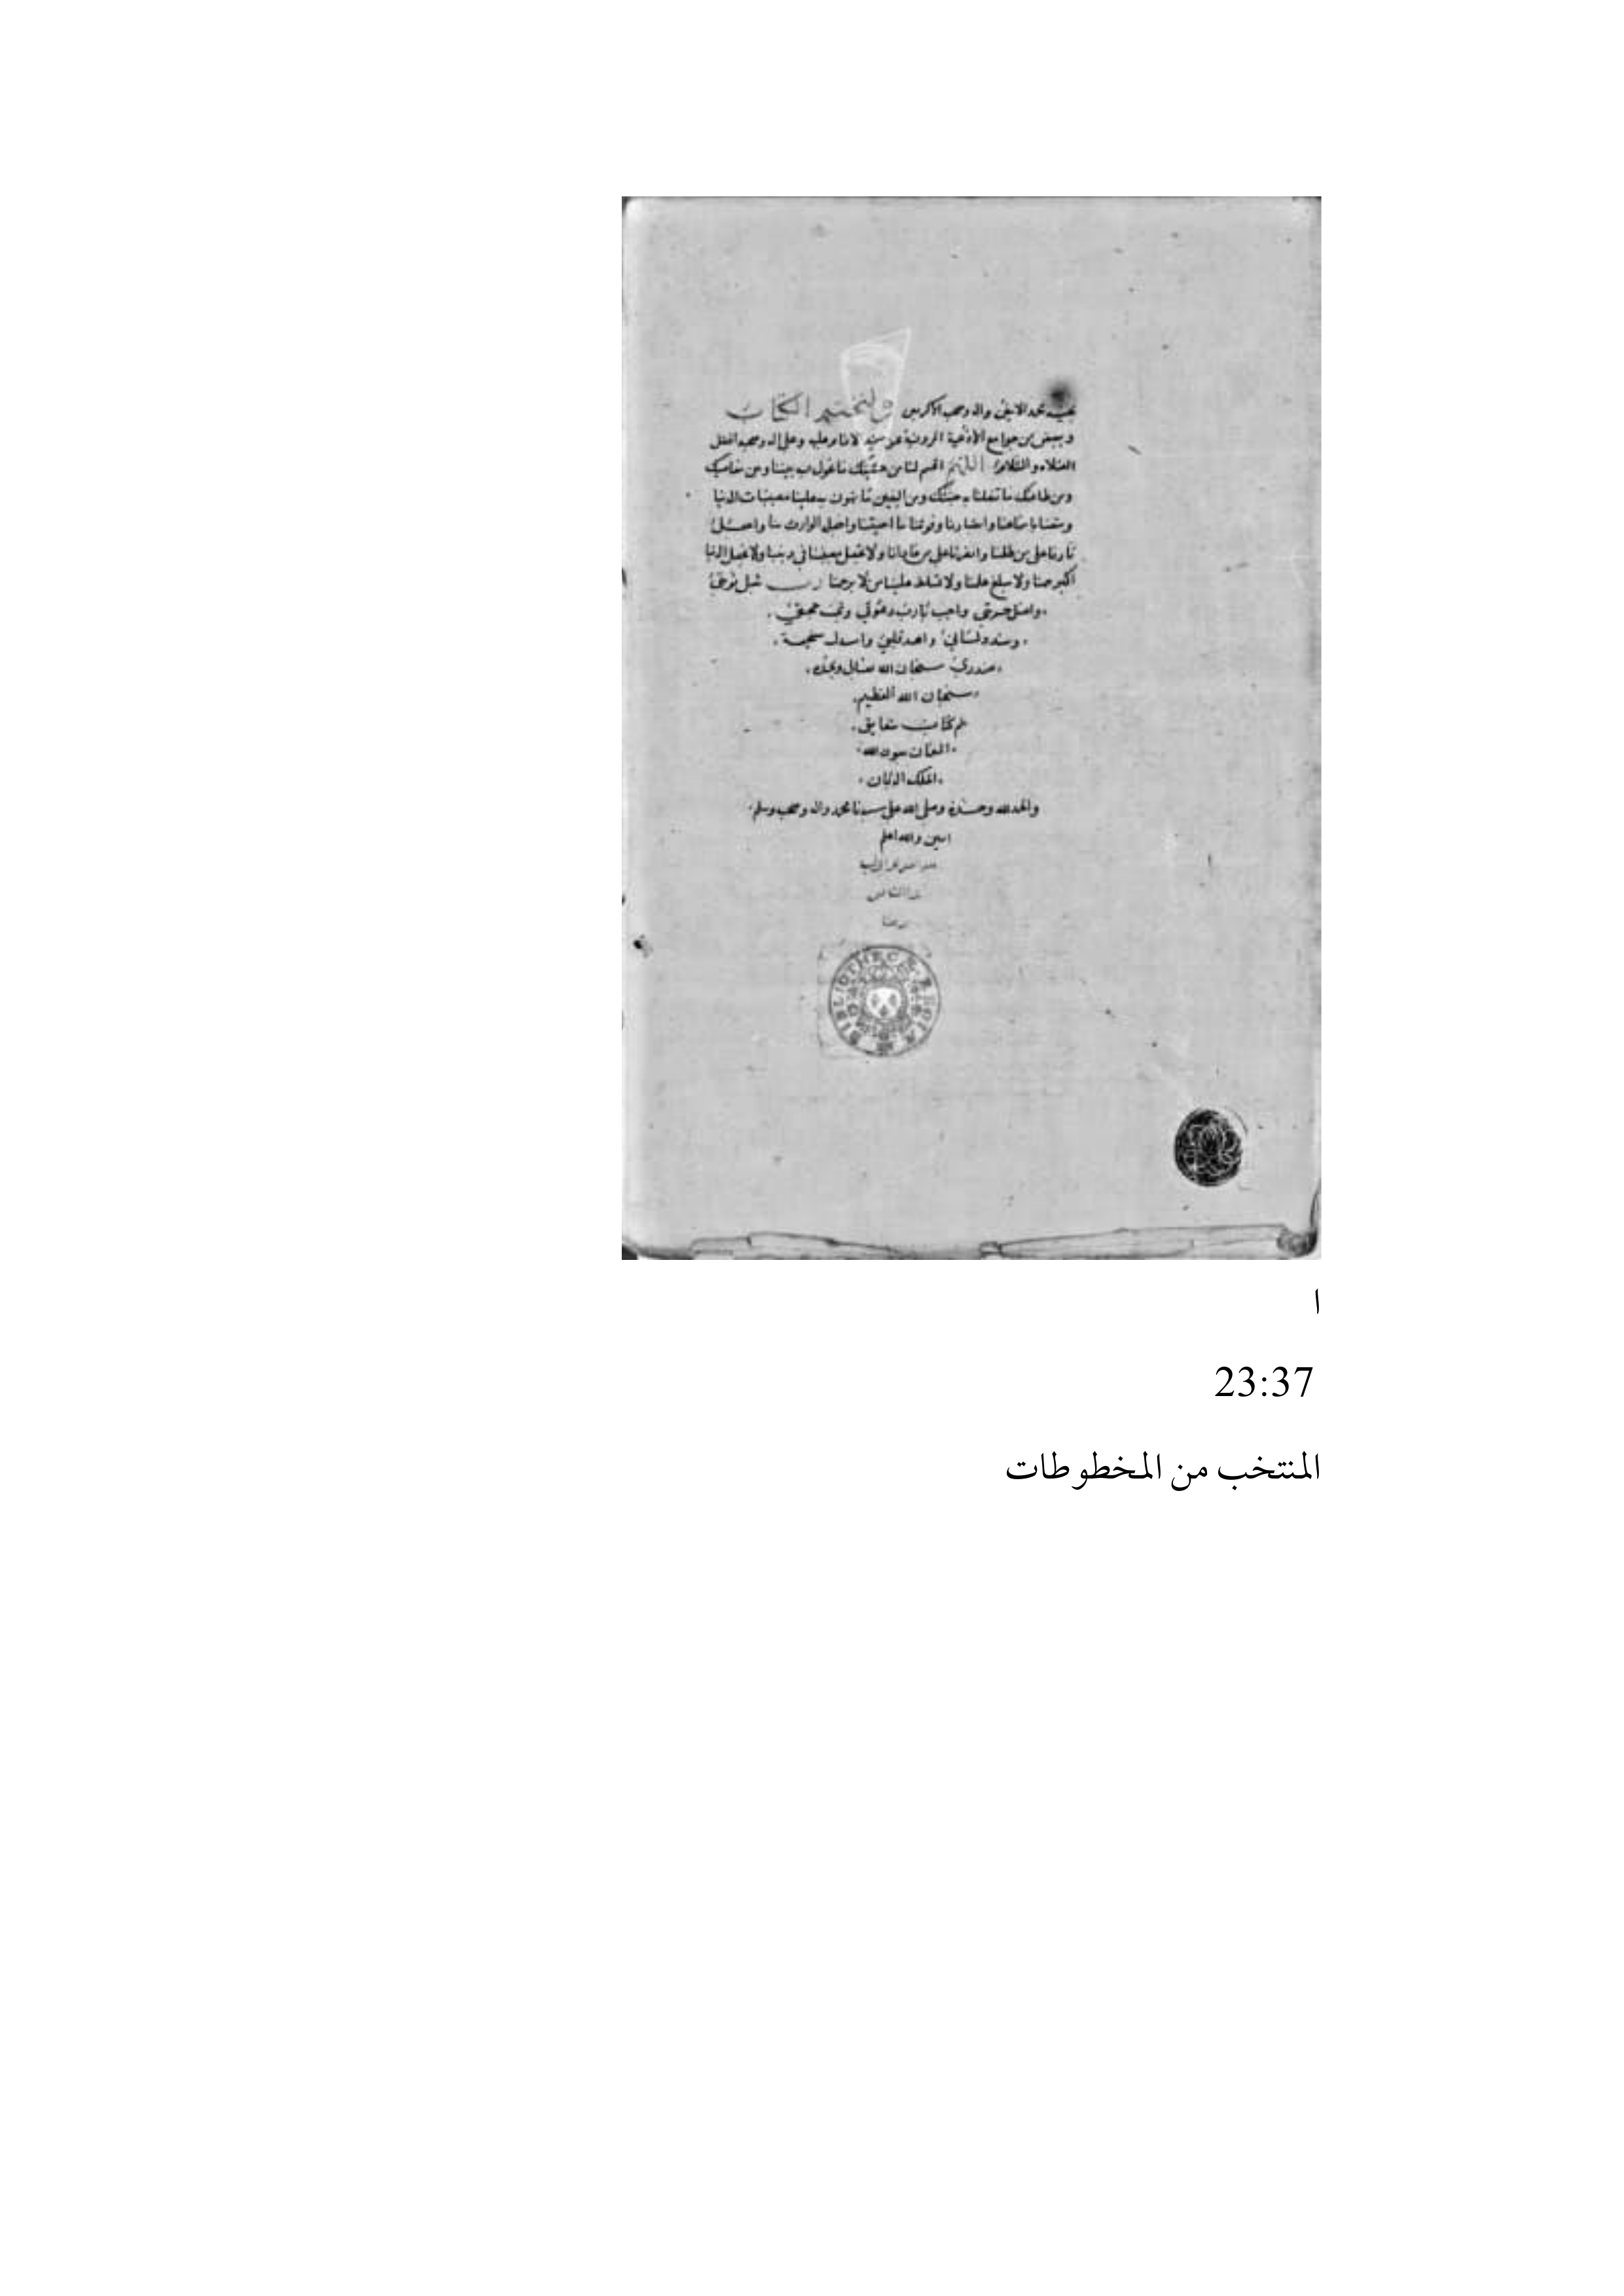 محمد الامين واله وصحبه الاكرمين ولنختم الكتاب
وببعض من جوامع الأدعية المروية عن سيد الانام عليه وعلى اله وصحبه افضل
الصلاه والسلام اللهم اقسم لنا من خشيتك ما تحول به بيننا وبين معاصيك
ومن طاعتك ما تبلغنا به جنتك ومن اليقين ما تهون به علينا مصيبات الدنيا
ومتعنا باسماعنا وابصارنا وقوتنا ما احييتنا واجعله الوارث منا واجعل
ثارنا على من ظلمنا وانصرنا على من عادانا ولا تجعل مصيبتنا في ديننا ولا تجعل الدنيا
اكبر همنا ولا مبلغ علمنا ولا تسلط علينا من لا يرحمنا رب تقبل توبتي
واغسل حوبتي واجب يا رب دعوتي وثبت حجتي
وسدد لساني واهد قلبي واسلل سخيمة
صدري سبحان الله وبحمده
سبحان الله العظيم
تم كتاب شقايق
النعمان بعون الله
الملك الديان
والحمد لله وحده وصلى الله على سيدنا محمد واله وصحبه وسلم
امين والله اعلم
BIBLIOTHECÆ REGIÆ
ا
23:37
المنتخب من المخطوطات